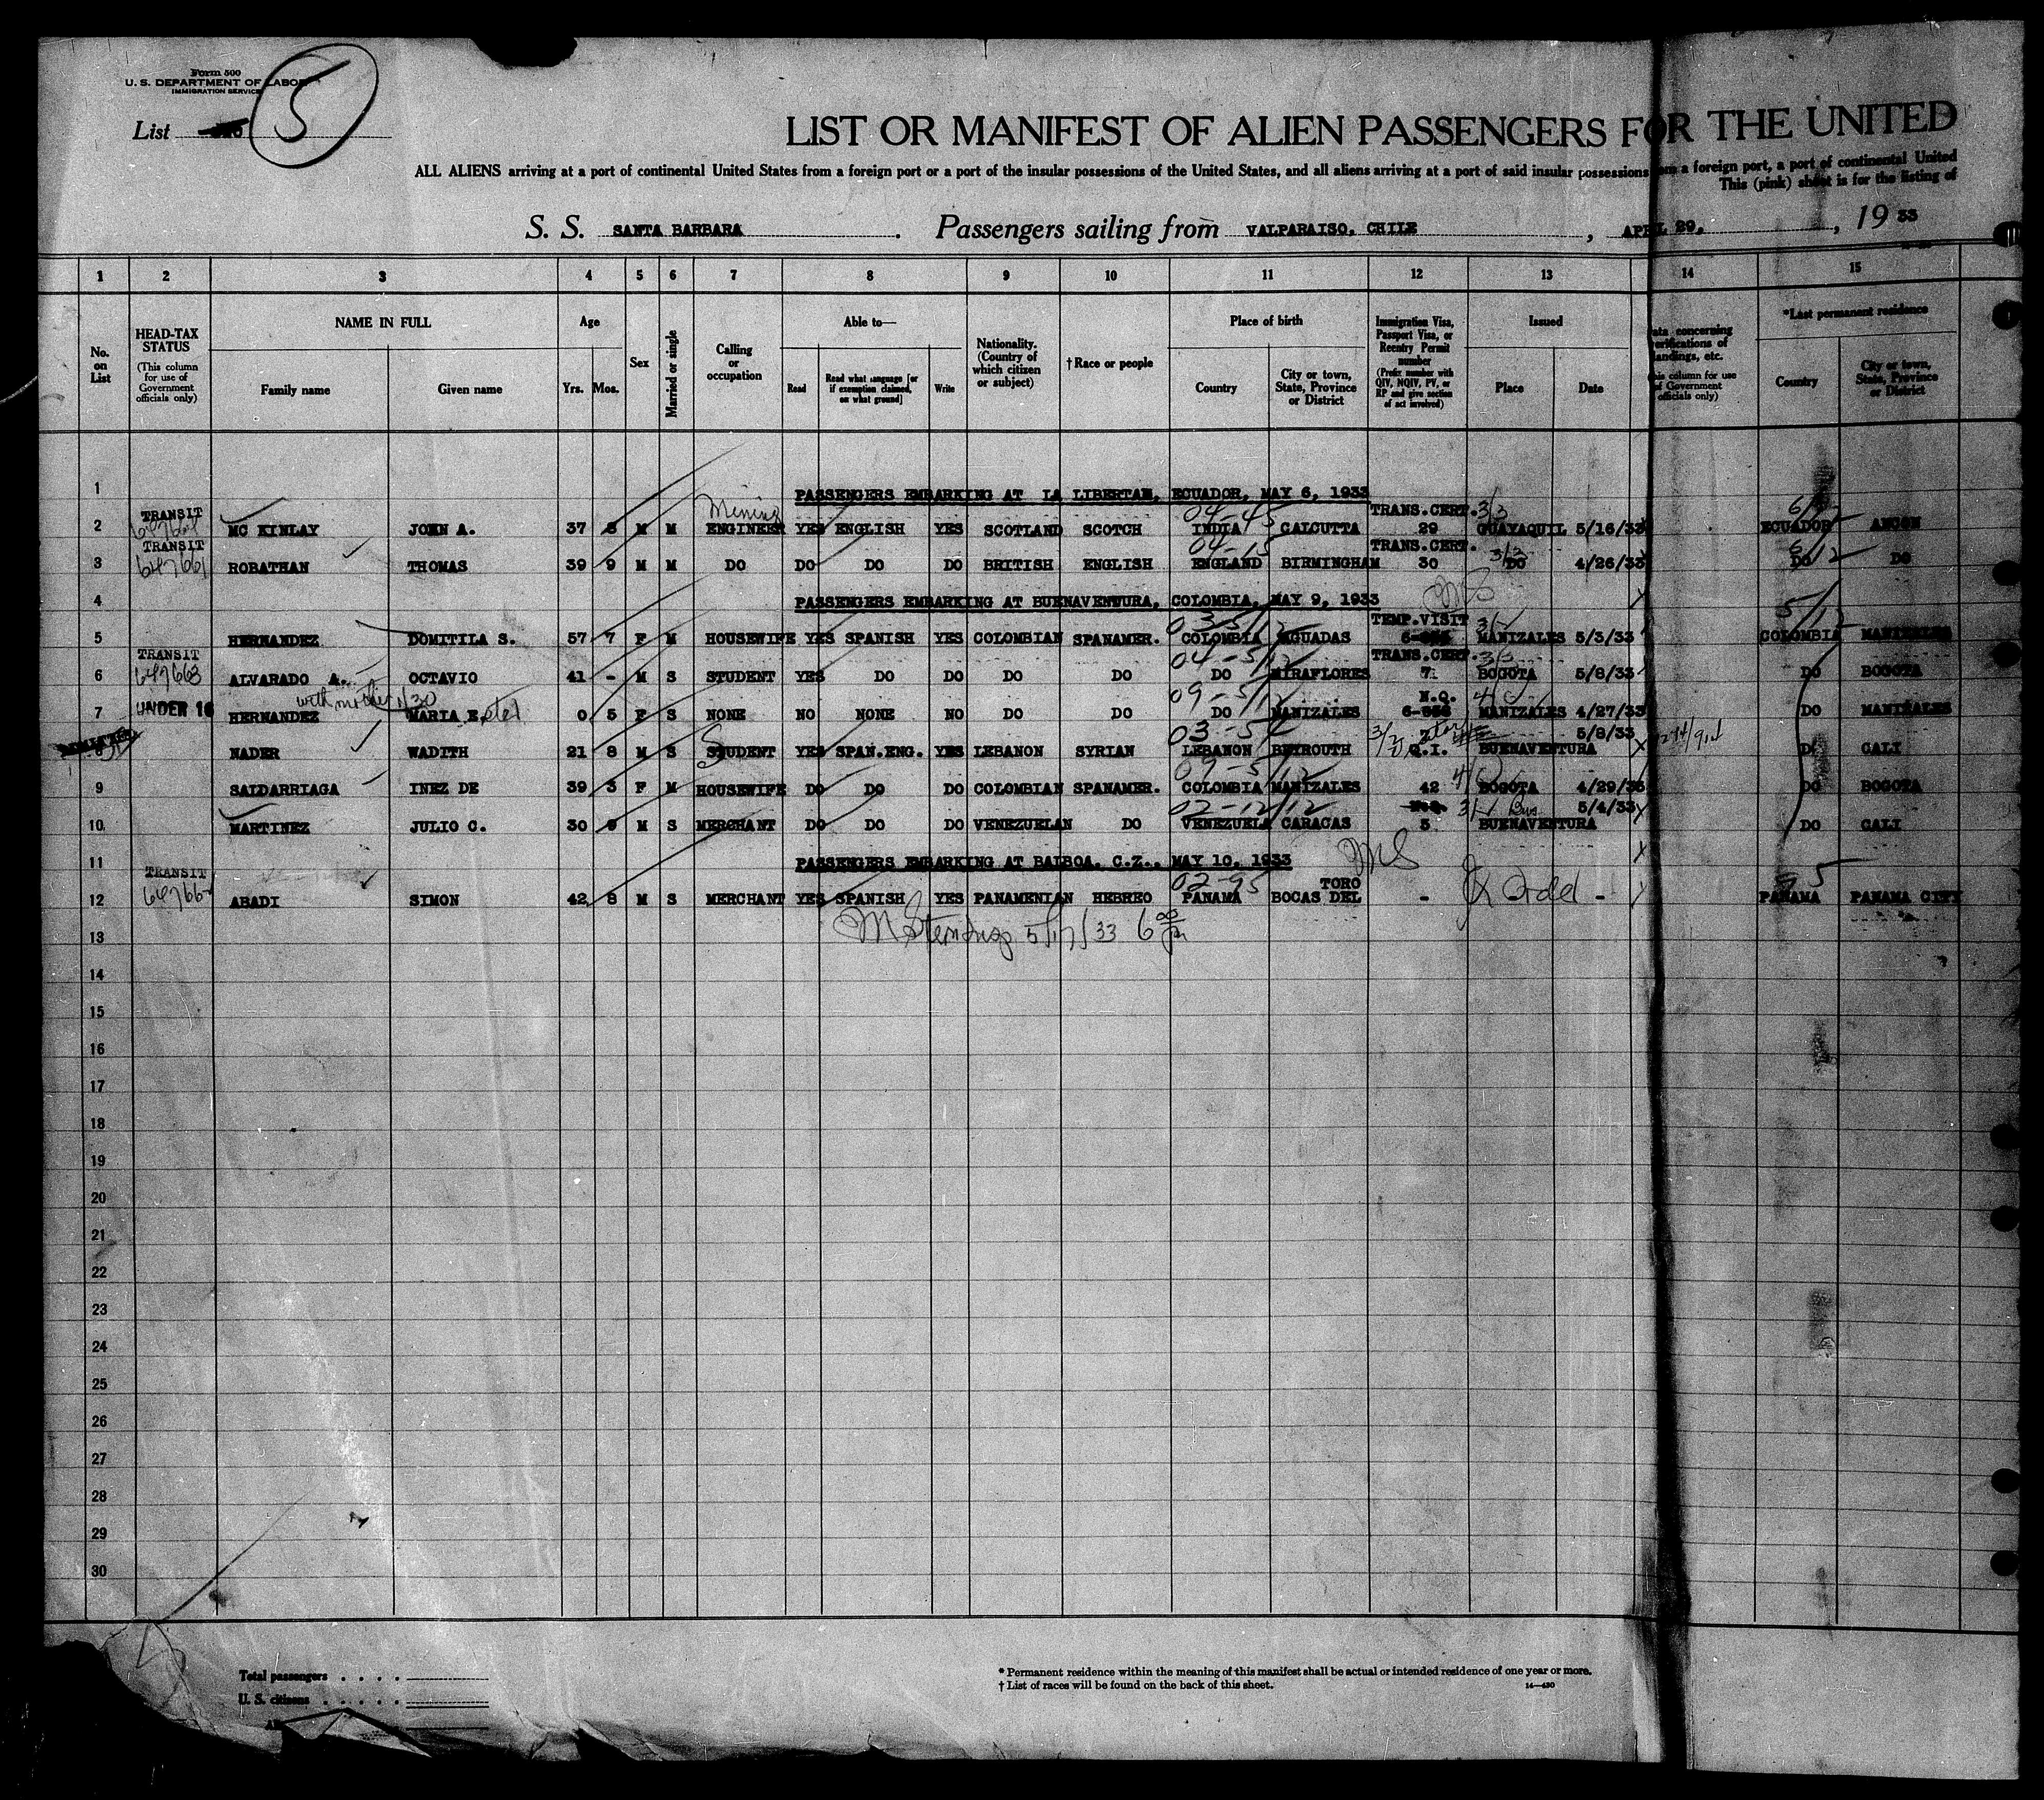 Form 500
U. S. DEPARTMENT OF LABOR
IMMIGRATION SERVICE
List 5
LIST OR MANIFEST OF ALIEN PASSENGERS FOR THE UNITED
ALL ALIENS arriving at a port of continental United States from a foreign port or a port of the insular possessions of the United States, and all aliens arriving at a port of said insular possessions a foreign port, a port of continental United
This (pink) sheet is for the listing of
S. S. SANTA BARBARA . Passengers sailing from VALPARAISO, CHILE , APRIL 29, , 19 33
1 2 3 4 5 6 7 8 9 10 11 12 13 14 15
No. on List
HEAD-TAX STATUS (This column for use of Government officials only)
NAME IN FULL
Family name Given name
Age
Yrs. Mos.
Sex
Married or single
Calling or occupation
Able to—
Read Read what language [or if exemption claimed, on what ground] Write
Nationality. (Country of which citizen or subject)
† Race or people
Place of birth
Country City or town, State, Province or District
Immigration Visa, Passport Visa, or Reentry Permit number (Prefix number with QIV, NQIV, PV, or RP and give section of act involved)
Issued
Place Date
concerning verifications of landings, etc. column for use of Government officials only)
*Last permanent residence
Country City or town, State, Province or District
1 PASSENGERS EMBARKING AT LA LIBERTAD, ECUADOR, MAY 6, 1933
TRANSIT Mining 04-45 TRANS.CERT. 3/3
2 MC KINLAY JOHN A. 37 8 M M ENGINEER YES ENGLISH YES SCOTLAND SCOTCH INDIA CALCUTTA 29 GUAYAQUIL 5/16/33 ECUADOR ANCON
TRANSIT 04-15 TRANS.CERT. 3/3
3 647661 ROBATHAN THOMAS 39 9 M M DO DO DO DO BRITISH ENGLISH ENGLAND BIRMINGHAM 30 DO 4/26/33 DO DO
4 PASSENGERS EMBARKING AT BUENAVENTURA, COLOMBIA, MAY 9, 1933
03-5/12 TEMP.VISIT 5/12
5 HERNANDEZ DOMITILA S. 57 7 F M HOUSEWIFE YES SPANISH YES COLOMBIAN SPANAMER. COLOMBIA AGUADAS MANIZALES 5/3/33 COLOMBIA MANIZALES
TRANSIT 04-5/12 TRANS.CERT. 3/3
6 647663 ALVARADO A. OCTAVIO 41 - M S STUDENT YES DO DO DO DO DO MIRAFLORES 7 BOGOTA 5/8/33 DO BOGOTA
with mother 09-5/12 N.Q.
7 UNDER 16 HERNANDEZ MARIA E. 0 5 F S NONE NO NONE NO DO DO DO MANIZALES MANIZALES 4/27/33 DO MANIZALES
03-54 7 5/8/33
8 NADER WADITH 21 8 M S STUDENT YES SPAN.ENG. YES LEBANON SYRIAN LEBANON BEYROUTH Q.I. BUENAVENTURA DO CALI
09-5/12
9 SALDARRIAGA INEZ DE 39 3 F M HOUSEWIFE DO DO DO COLOMBIAN SPANAMER. COLOMBIA MANIZALES 42 BOGOTA 4/29/33 DO BOGOTA
02-12/12 5/4/33
10 MARTINEZ JULIO C. 30 9 M S MERCHANT DO DO DO VENEZUELAN DO VENEZUELA CARACAS 3 BUENAVENTURA DO CALI
11 PASSENGERS EMBARKING AT BALBOA, C.Z., MAY 10, 1933
TRANSIT 02-95 TORO
12 ABADI SIMON 42 8 M S MERCHANT YES SPANISH YES PANAMENIAN HEBREO PANAMA BOCAS DEL - - - PANAMA PANAMA CITY
13
14
15
16
17
18
19
20
21
22
23
24
25
26
27
28
29
30
Total passengers . . . .
U. S. citizens . . . . .
* Permanent residence within the meaning of this manifest shall be actual or intended residence of one year or more.
† List of races will be found on the back of this sheet.
14—430